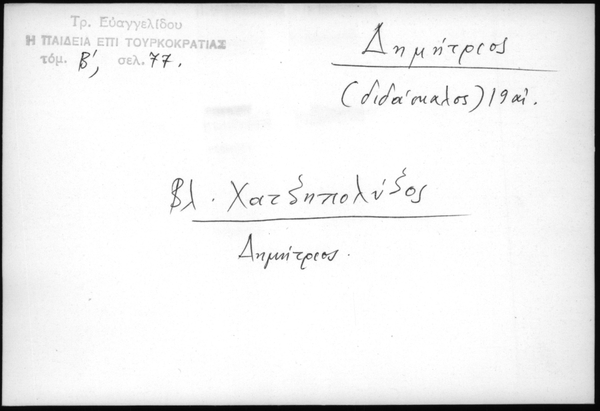 Τρ. Εὐαγγελίδου
Η ΠΑΙΔΕΙΑ ΕΠΙ ΤΟΥΡΚΟΚΡΑΤΙΑΣ
τόμ. Β', σελ. 77.
Δημήτριος
(διδάσκαλος) 19 αἰ.
Βλ. Χατζηπολύζος
Δημήτριος.